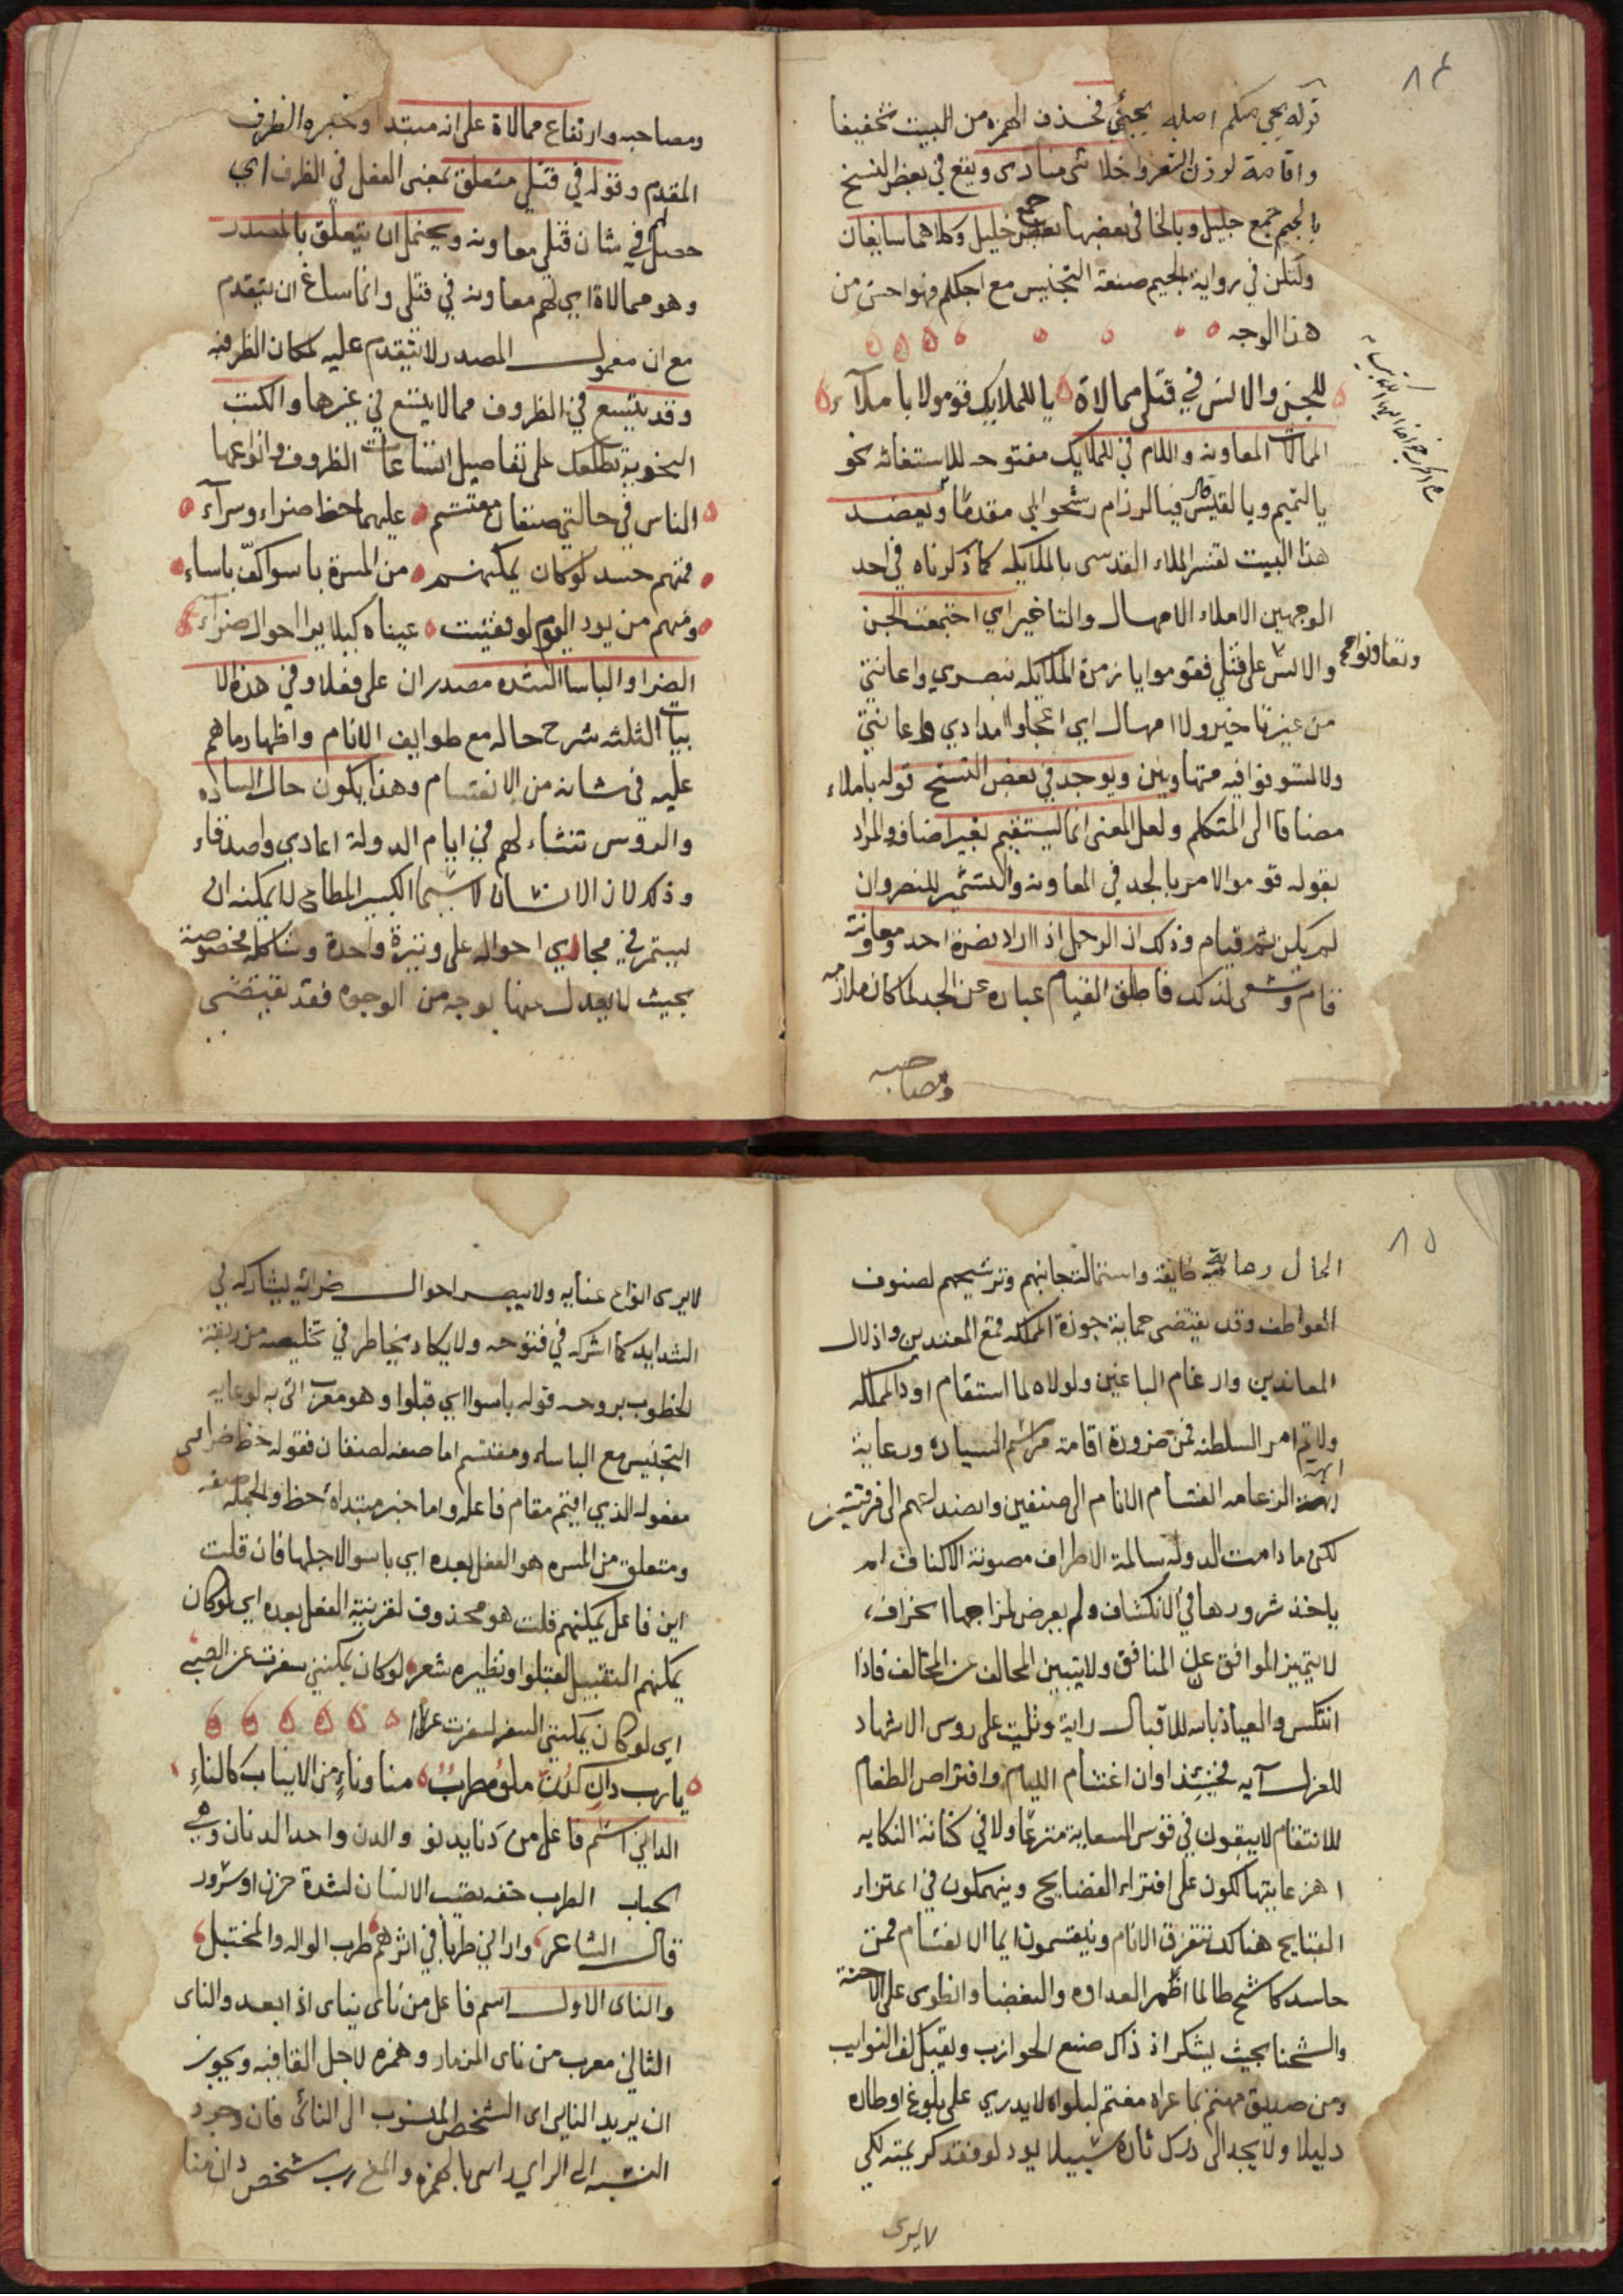 ٨٤
قوله يجي منكم اصله يجيئ فحذف الهمزه من البيت تخفيفا
واقامة لوزن الشعر واخلائى منادى ويقع في بعض النسخ
بالجيم جمع جليل وبالخا فى بعضها جمع خليل وكلاهما سايغان
ولكن في رواية الجيم صنعة التجنيس مع اجلكم فهو احسن من
هذا الوجه
للجن والانس في قتلى ممالاة يا للملايك قوموا لا باملآء
الممالات المعاونه واللام في للملايك مفتوحه للاستغاثه نحو
يا لتميم ويا لقيس فيا لرزام رشحوا بي مقدما ويعضد
هذا البيت تفسير الملاء القدسى بالملايكه كما ذكرناه في احد
الوجهين الاملاء الامهال والتاخير اي اجتمعت الجن
والانس على قتلي فقوموا يا زمرة الملايكه بنصري واعانتي
وتعاونوا
من غير تاخير ولا امهال اي اعجلوا امدادي واعانتي
ولا تستونوا فيه متهاونين ويوجد في بعض النسخ قوله باملاء
مضافا الى المتكلم ولعل المعنى انما يستقيم بغير اضافه والمراد
بقوله قوموا الامر بالجد في المعاونه والتشمير للنصر وان
لم يكن ثم قيام وذلك ان الرجل اذا اراد نصرة احد ومعاونته
قام وسعى لذلك فاطلق القيام عباره عن الجد لما كان ملازمه
ومصاحبه
ومصاحبه وارتفاع ممالاة على انه مبتدا وخبره الظرف
المقدم وقوله في قتلي متعلق بمعنى الفعل في الظرف اي
حصل لهم في شان قتلي معاونه ويحتمل ان يتعلق بالمصدر
وهو ممالاة اي لهم معاونه في قتلى وانما ساغ ان يتقدم
مع ان معمول المصدر لا يتقدم عليه لمكان الظرفيه
وقد يتسع في الظروف مما لا يتسع في غيرها والكتب
النحوية تطلعك على تفاصيل اتساعات الظروف وانواعها
الناس في حالتي صنفان مقتسم عليهما حظ ضراء وسرآء
فمنهم حسد لو كان يمكنهم من المسرة باسوا كفّ باساء
ومنهم من يود اليوم لو فقئت عيناه كيلا يرا احوال ضرّاء
الضرا والباسا الشده مصدران على فعلا وفي هذه الا
بيات الثلثه شرح حاله مع طوايف الانام واظهار ما هم
عليه فى شانه من الانقسام وهذا يكون حال الساده
والروس تنشاء لهم في ايام الدولة اعادي واصدقاء
وذلك لان الانسان لا سيما الكبير المطاع لا يمكنه ان
يستمر في مجاري احواله على وتيرة واحدة وشاكلة مخصوصة
بحيث لا يعدل عنها بوجه من الوجوه فقد تقتضى
٨٥
الحال رعاية طايفة واستمالتهم وترشيحهم لصنوف
العواطف وقد يقتضى حماية حوزة المملكه قمع المعتدين واذلال
المعاندين وارغام الباغين ولولاه لما استقام اود المملكه
ولا تم امر السلطنه فمن ضرورة اقامة مراسم السياده ورعاية
ابهة الزعامه انقسام الانام الى صنفين وانصداعهم الى فرقتين
لكن ما دامت الدوله سالمة الاطراف مصونة الاكناف لم
ياخذ شرورها في الانكشاف ولم يعرض لمزاجها انحراف
لا يتميز الموافق عن المنافق ولا يتبين المحالف عن المخالف فاذا
انتكس والعياذ بالله للاقبال راية وتليت على روس الاشهاد
للعزل آيه فحينئذ اوان اغتنام الليام وافتراص الطغام
للانتقام لا يبقون في قوس السعاية منزعا ولا في كنانة النكايه
اهزعا يتهالكون على افتراء الفضايح وينهمكون في اعتزاء
القبايح هناك تتفرق الانام وينقسمون ايما الانقسام فمن
حاسد كاشح طالما اظهر العداوه والبغضا وانطوى على الاحنة
والشحنا بحيث يشكر اذ ذاك صنع الحوازب ويقبل كف النوايب
ومن صديق مهتم بما عراه مغتم لبلواه لا يدري على بلوغ اوطاره
دليلا ولا يجد الى درك ثاره سبيلا يود لو فقد كريمته لكي
لا يرى
لا يرى انواع عنايه ولا يبصر احوال ضرائه ليشاركه في
الشدايد كما اشركه في فتوحه ولا يكاد يخاطر في تخليصه من ربقة
الخطوب بروحه قوله باسوا اي قبلوا وهو معرب اتى به لرعاية
التجنيس مع الباساء ومقتسم اما صفه لصنفان فقوله حظ ضرا
مفعوله الذي اقيم مقام فاعله واما خبر مبتداه حظ والجمله صفه
ومتعلق من المسره هو الفعل بعده اي باسوا لاجلها فان قلت
اين فاعل يمكنهم قلت هو محذوف لقرينة الفعل بعده اي لو كان
يمكنهم التقبيل لقبلوا ونظيره شعر لو كان يمكنني سفرت عن الصبى
اي لو كان يمكنني السفر لسفرت
يا رب دان كدن ملؤه طرب منا وناء من الالباب كالناء
الداني اسم فاعل من دنا يدنو والدن واحد الدنان وهي
الحباب الطرب خفه تصيب الانسان لشدة حزن او سرور
قال الشاعر واراني طربا في اثرهم طرب الواله والمختبل
والناى الاول اسم فاعل من ناى يناى اذا بعد والناى
الثاني معرب من ناى المزمار وهمزه لاجل القافيه ويجوز
ان يريد النايى اى الشخص المنسوب الى النائى فان وجود
النسبه الى الراي رائى بالهمزه والمعنى رب شخص دان منا